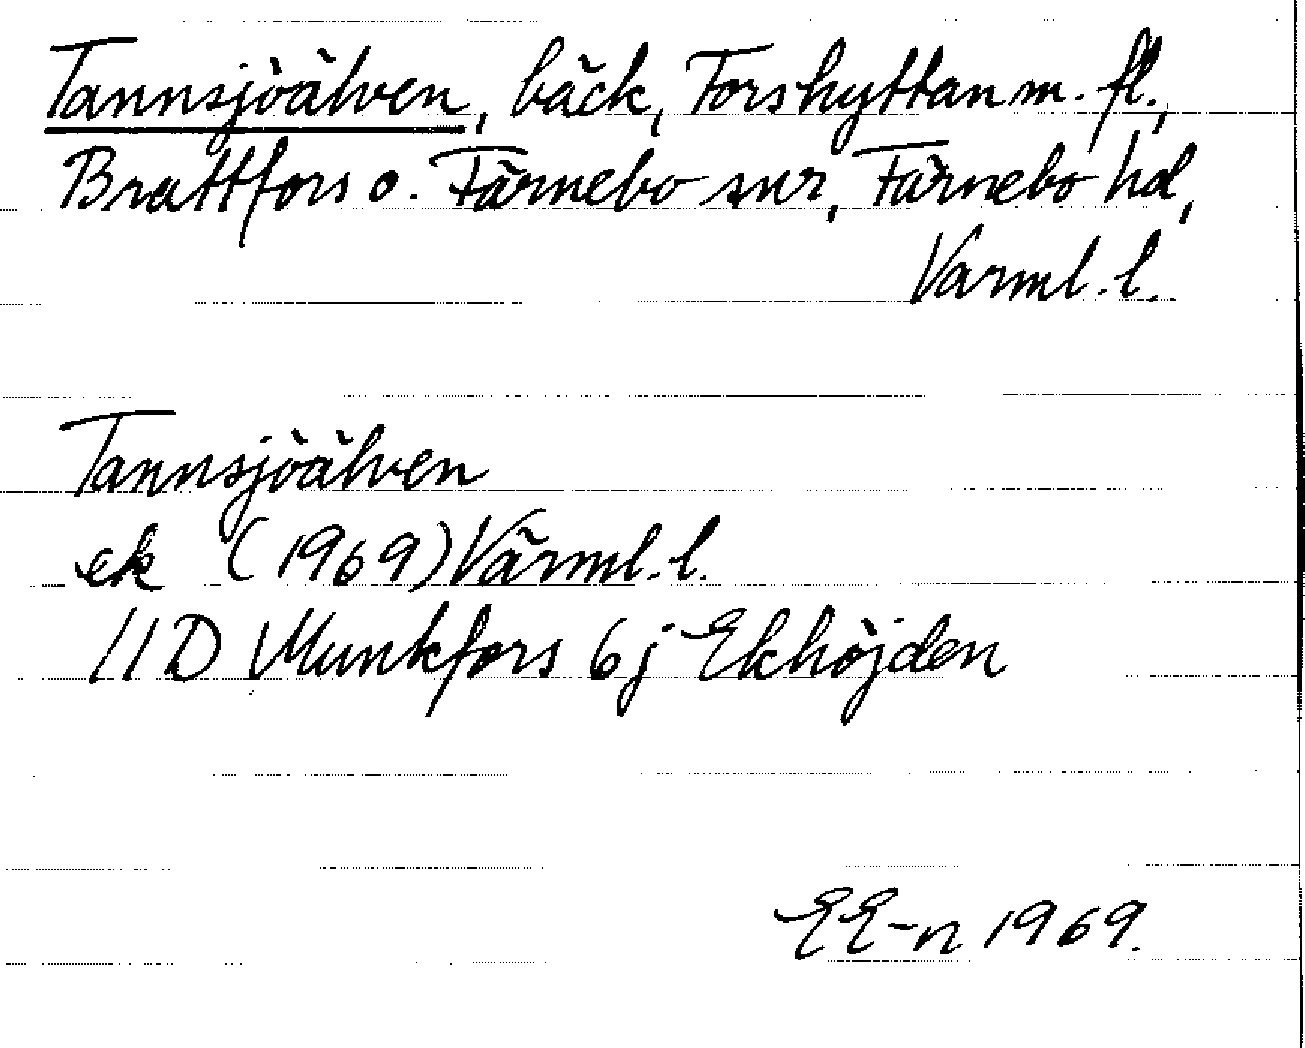 Tannsjöälven, bäck, Forshyttan m. fl.,
Brattfors o. Färnebo snr, Färnebo hd,
Värml. l.
Tannsjöälven
ek (1969) Värml. l.
11D Munkfors 6j Ekhöjden
EE-n 1969.